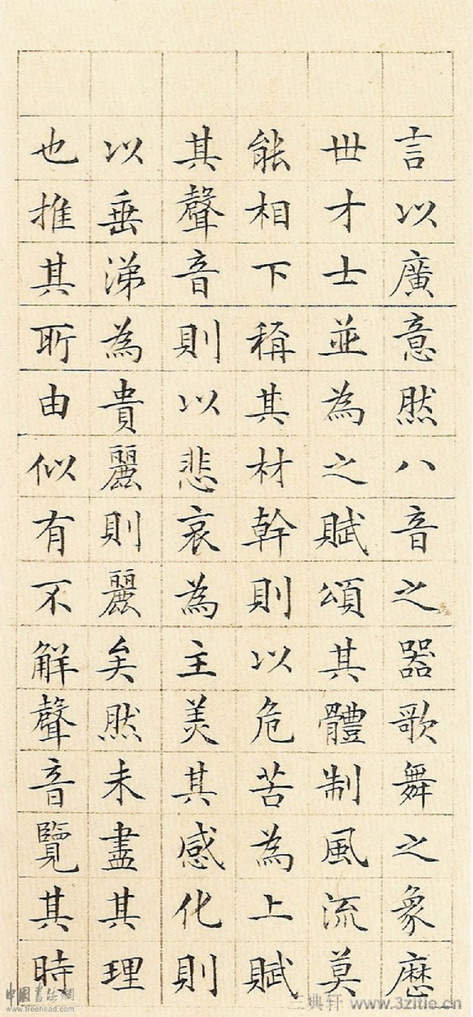 言以廣意然八音之器歌舞之象歷
世才士並為之賦頌其體制風流莫
能相下稱其材幹則以危苦為上賦
其聲音則以悲哀為主美其感化則
以垂涕為貴麗則麗矣然未盡其理
也推其所由似有不解聲音覽其時
中國書法網
www.freehead.com
三典轩 www.3zitie.cn